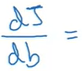 dJ
db =